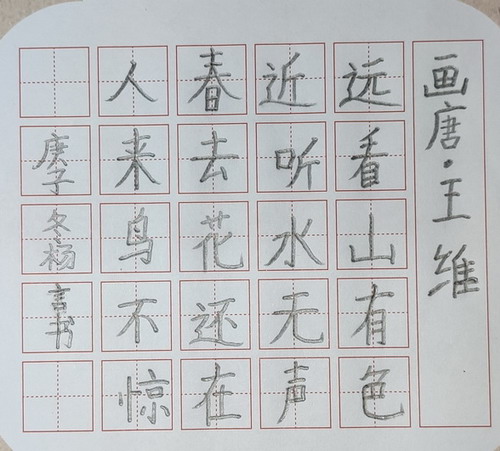 画唐·王维
远看山有色
近听水无声
春去花还在
人来鸟不惊
庚子冬杨言书